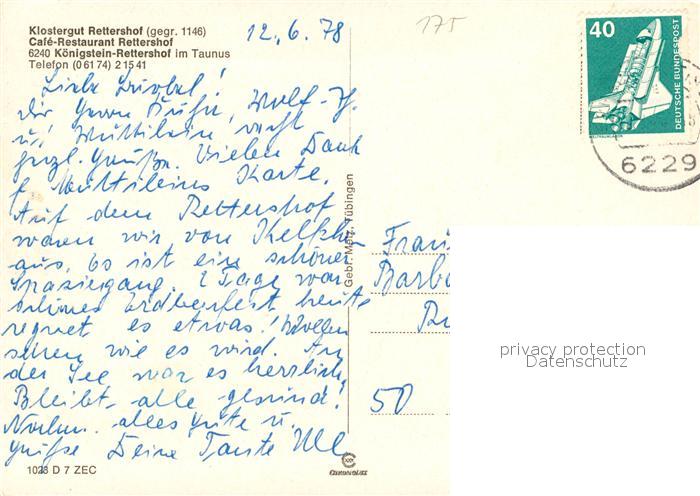 Klostergut Rettershof (gegr. 1146)
Café-Restaurant Rettershof
6240 Königstein-Rettershof im Taunus
Telefon (06174) 21541
12.6.78
175
40
DEUTSCHE BUNDESPOST
6229
Liebe
Dir, Wolf-
u.
herzl. Grüße. Vielen Dank
f. Muttileins Karte.
Auf dem Rettershof
waren wir von
aus. Es ist ein schöner
Spaziergang. 2 Tage war
schönes Erdbeerfest heute
regnet es etwas! Wollen
sehen wie es wird. An
der See war es herrlich.
Bleibt alle gesund!
Nochm. alles Gute u.
Grüße Deine Tante
Gebr. Metz, Tübingen
Barba
50
privacy protection
Datenschutz
1023 D 7 ZEC